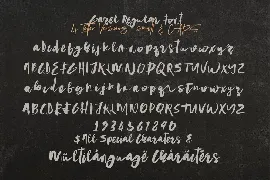 Carel Regular Font
abcdefghijklmnopqrstuvwxyz
ABCDEFGHIJKLMNOPQRSTUVWXYZ
abcdefghijklmnopqrstuvwxyz
ABCDEFGHIJKLMNOPQRSTUVWXYZ
1234567890
All Special Characters &
Multilanguage Characters